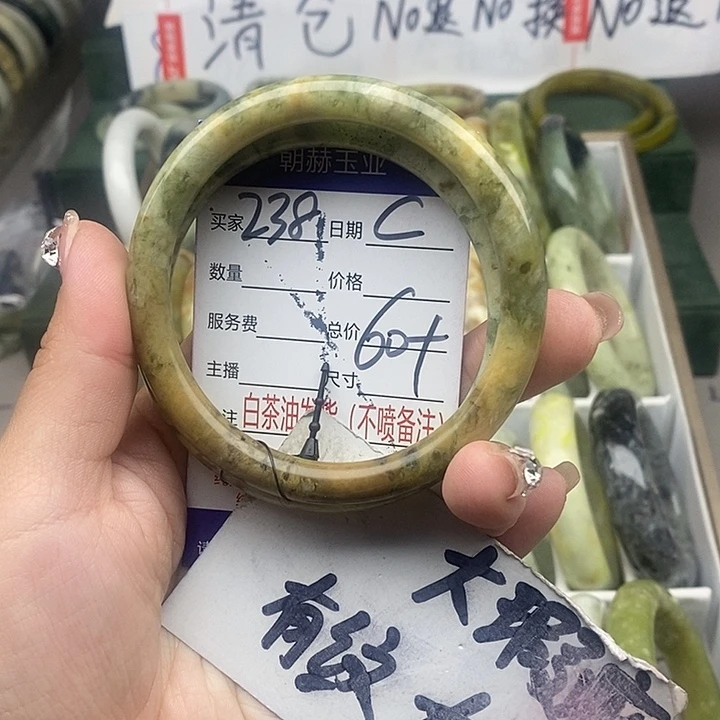 清仓 No退 No换 No退
朝赫玉业
买家 238 日期 C
数量 价格
服务费 总价 60+
主播 尺寸
注 白茶油发货(不喷备注)
有纹